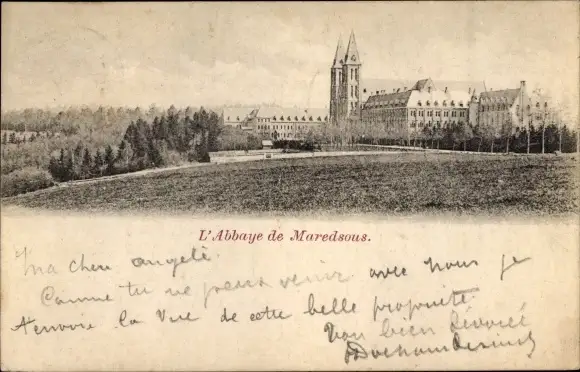 L'Abbaye de Maredsous.
Ma chere angele.
Comme tu ne peux venir avec nous je
t'envoie la vue de cette belle propriete
Ton bien dévoué